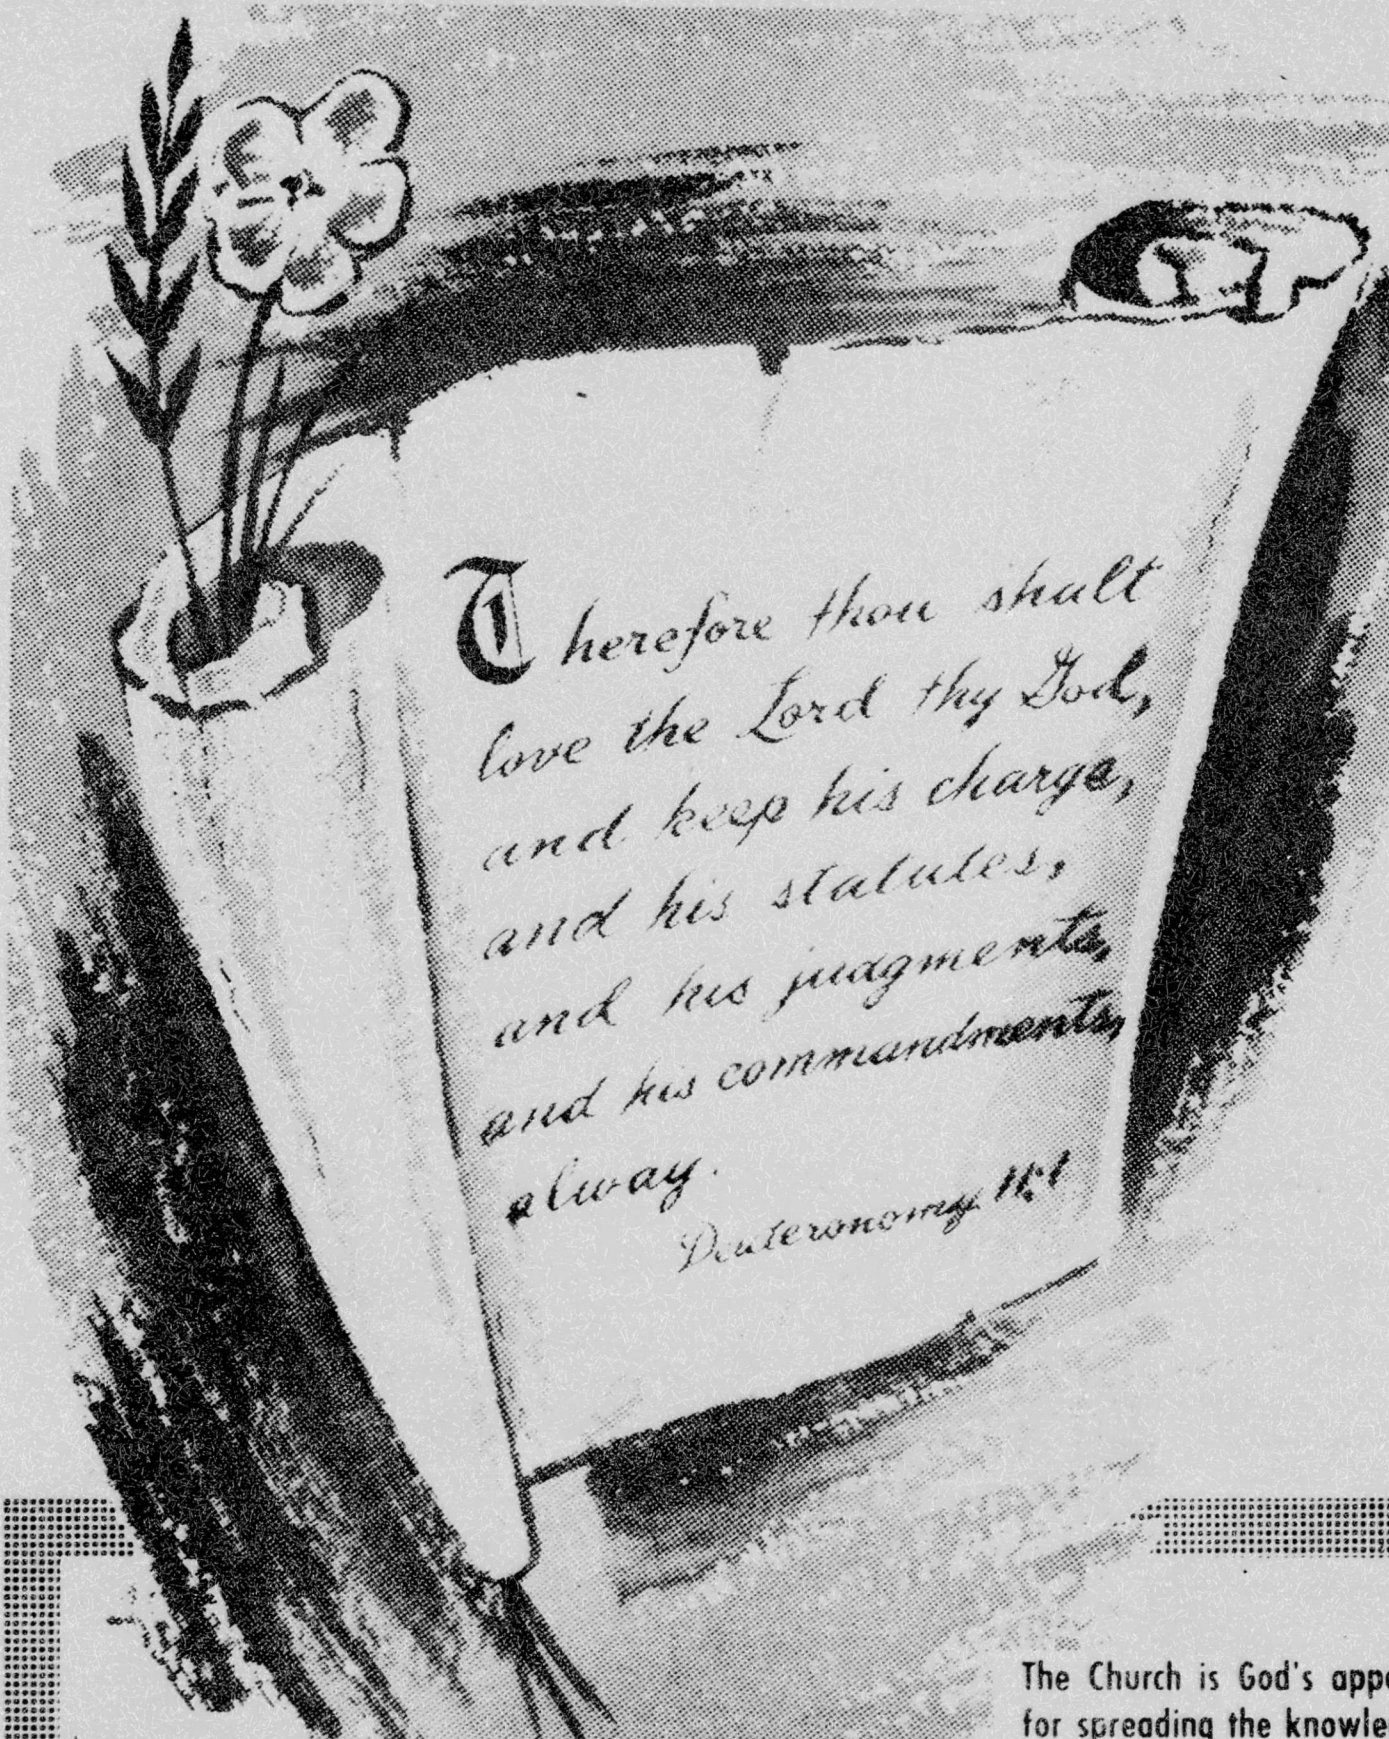 Therefore thou shalt
love the Lord thy God,
and keep his charge,
and his statutes,
and his judgments,
and his commandments,
alway.
Deuteronomy 11:1
The Church is God's appo
for spreading the knowle